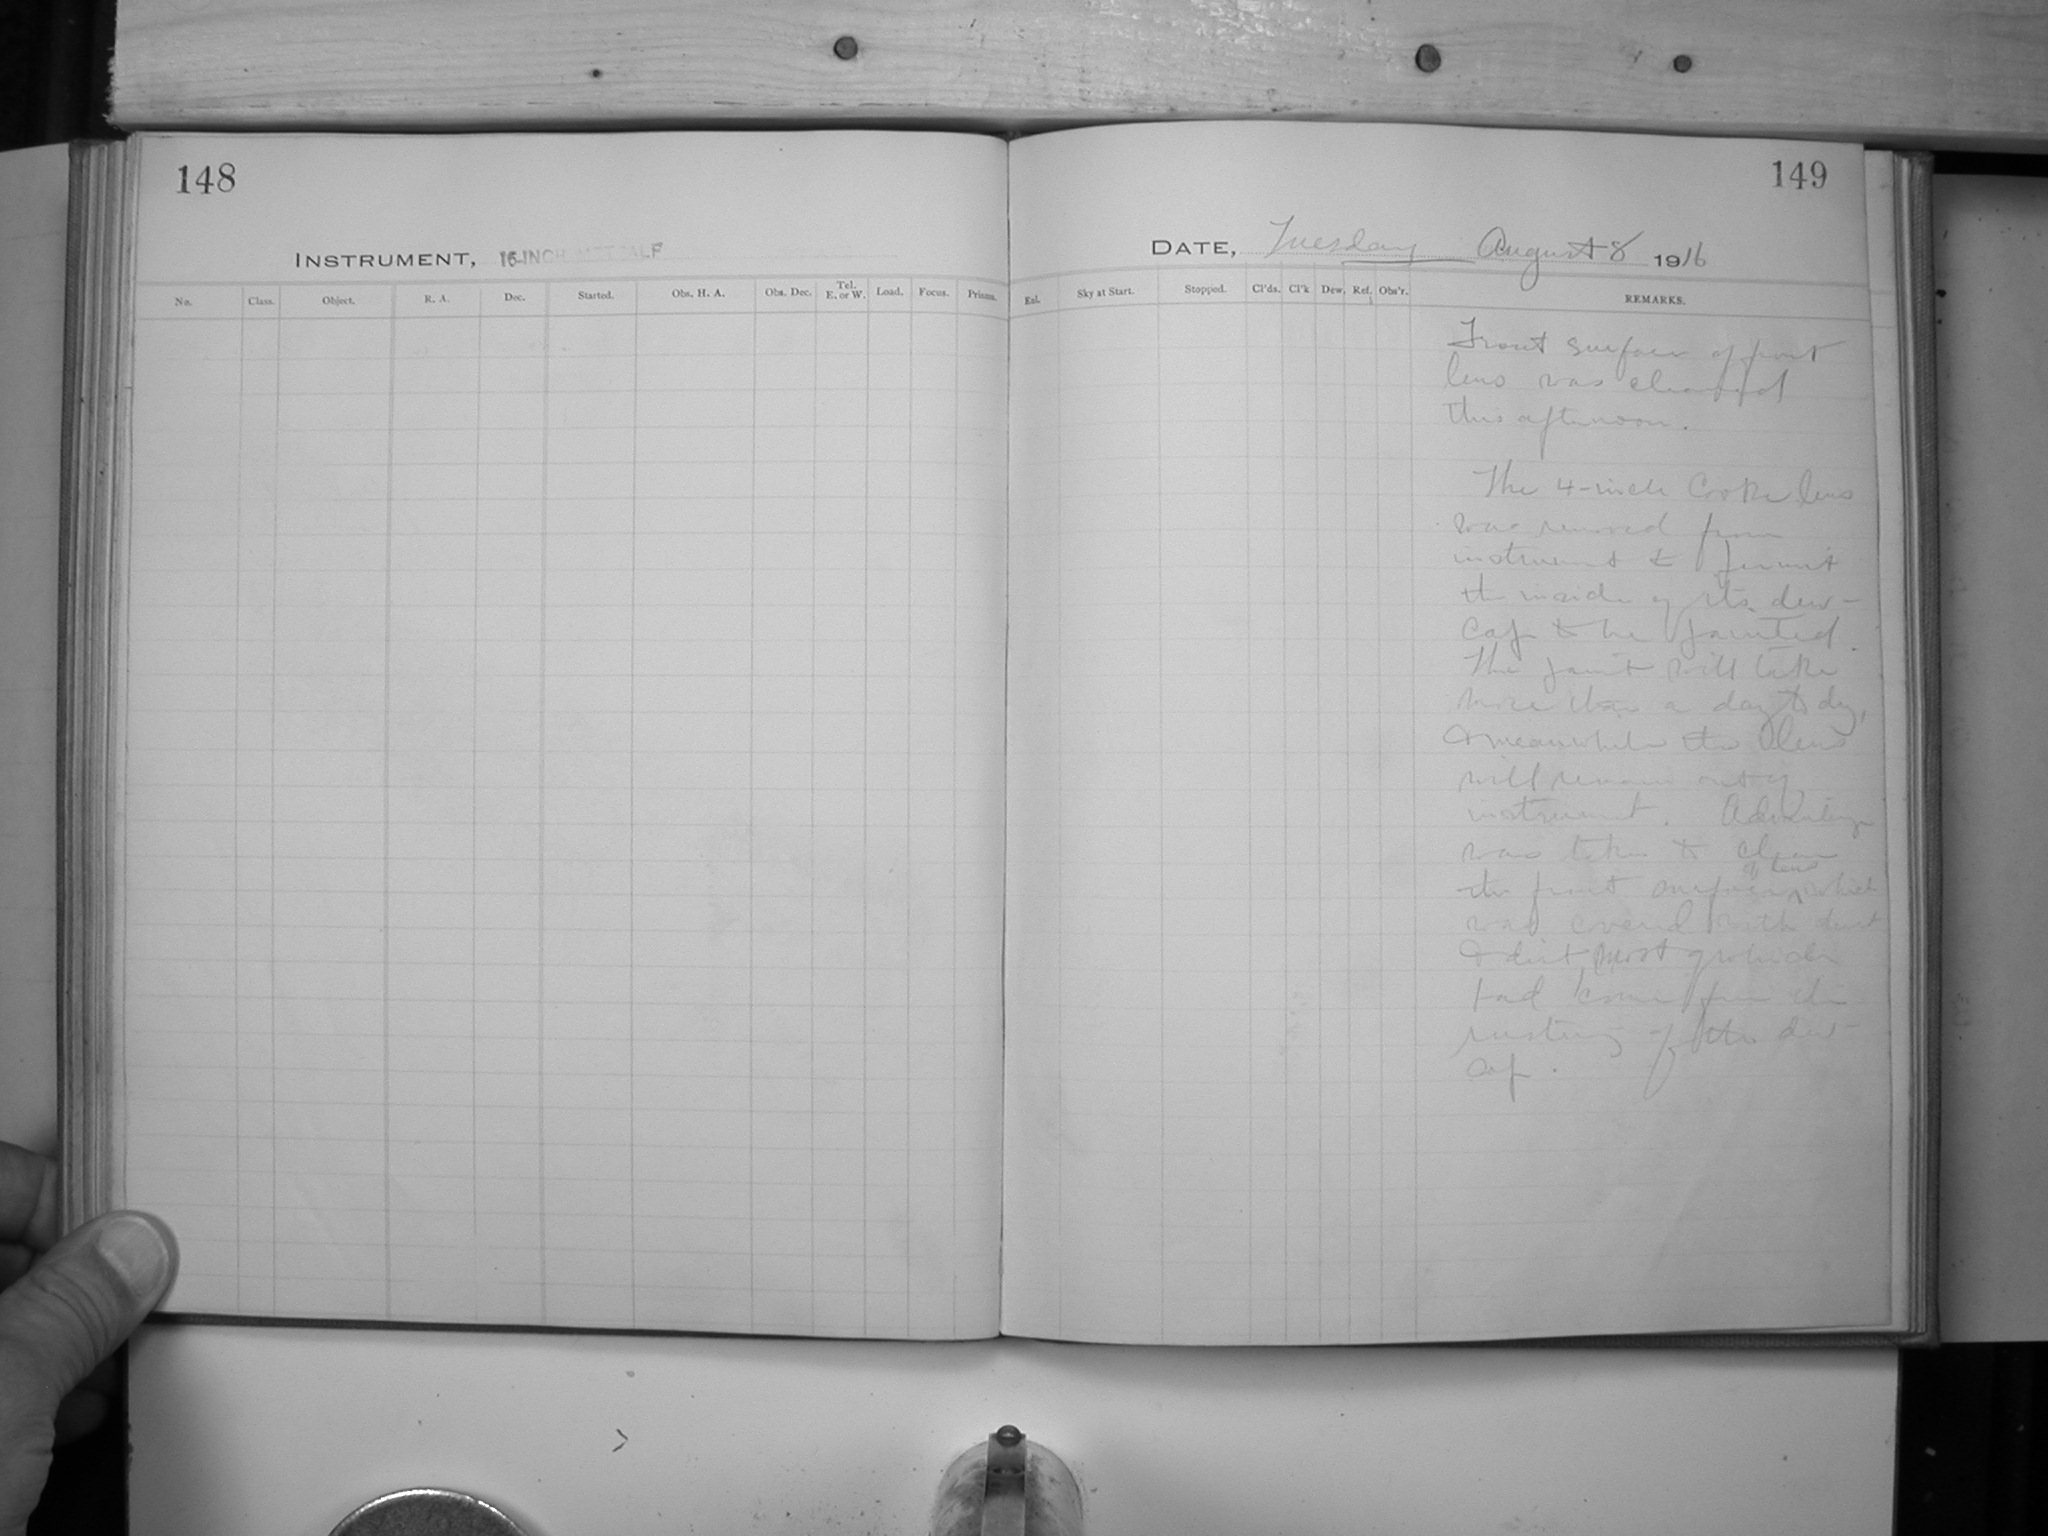 148
149
INSTRUMENT, 16-INCH METCALF
DATE, Tuesday August 8 1916
No. Class. Object. R. A. Dec. Started. Obs. H. A. Obs. Dec. Tel. E. or W. Load. Focus. Prisms.
Exl. Sky at Start. Stopped. Cl'ds. Cl'k Dew. Ref. Obs'r. REMARKS.
Front surface of front
lens was cleaned
this afternoon.
The 4-inch Cooke lens
was removed from
instrument to permit
the inside of its dew-
cap to be painted.
The paint will take
more than a day to dry,
& meanwhile the lens
will remain out of
instrument. Advantage
was taken to clean
the front surface of lens which
was covered with dust
& dirt most of which
had come from the
rusting of the dew-
cap.